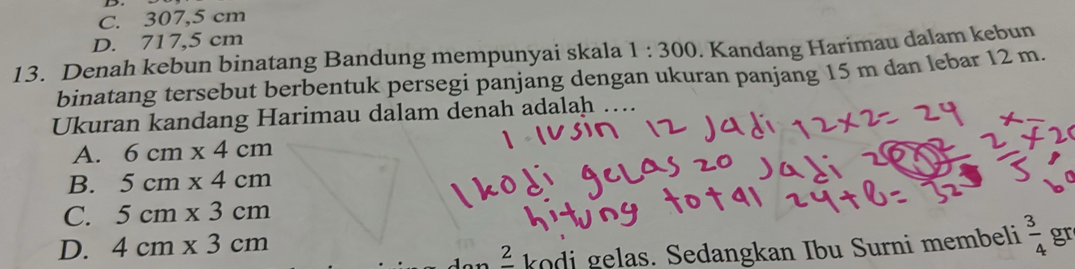 C. 307,5 cm
D. 717,5 cm
13. Denah kebun binatang Bandung mempunyai skala 1 : 300. Kandang Harimau dalam kebun
binatang tersebut berbentuk persegi panjang dengan ukuran panjang 15 m dan lebar 12 m.
Ukuran kandang Harimau dalam denah adalah ....
A. 6 cm x 4 cm
B. 5 cm x 4 cm
C. 5 cm x 3 cm
D. 4 cm x 3 cm
1 lusin 12 Jadi 12x2= 24
1 kodi gelas 20 Jadi
hitung total 24+8= 32
dan 2 kodi gelas. Sedangkan Ibu Surni membeli 3/4 gr